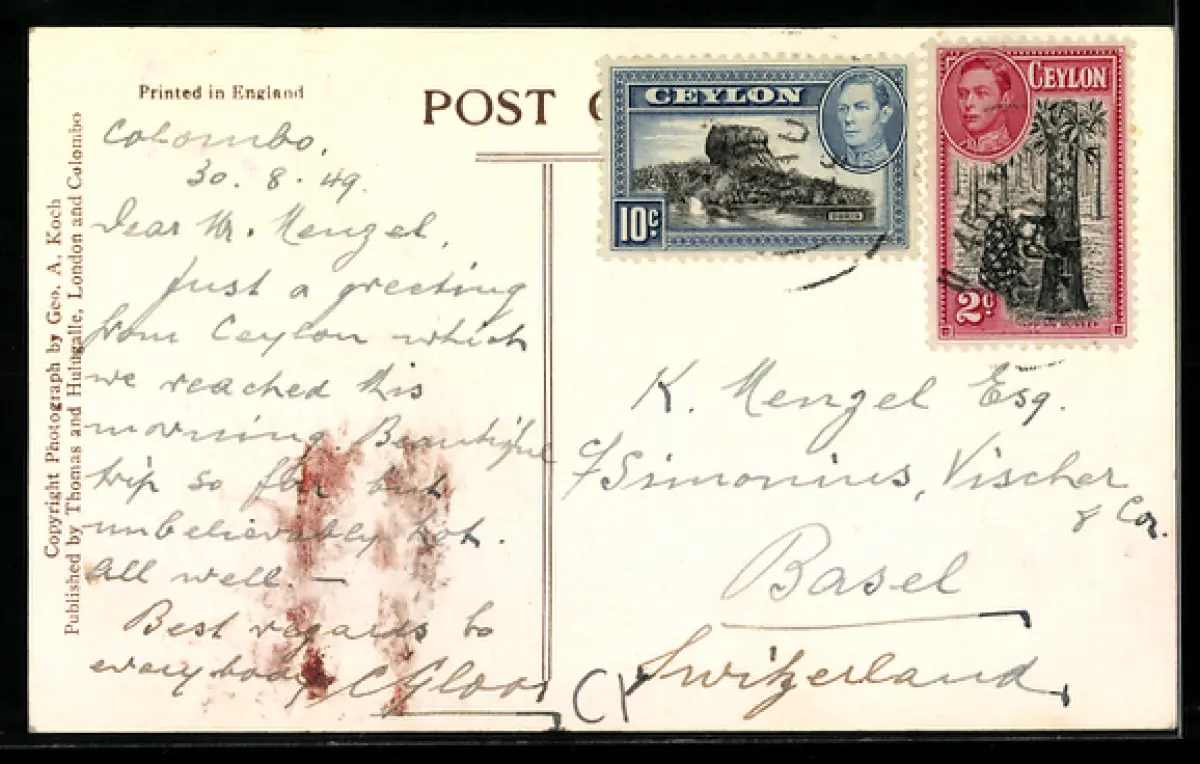 Printed in England
POST C
Copyright Photograph by Geo. A. Koch
Published by Thomas and Hulugalle, London and Colombo
Colombo,
30. 8. 49.
Dear Mr. Menzel,
Just a greeting
from Ceylon which
we reached this
morning. Beautiful
trip so far but
unbelievably hot.
All well. —
Best regards to
everybody
CEYLON
10c
CEYLON
2c
K. Menzel Esq.
c/ Simonius, Vischer
& Co.
Basel
Switzerland